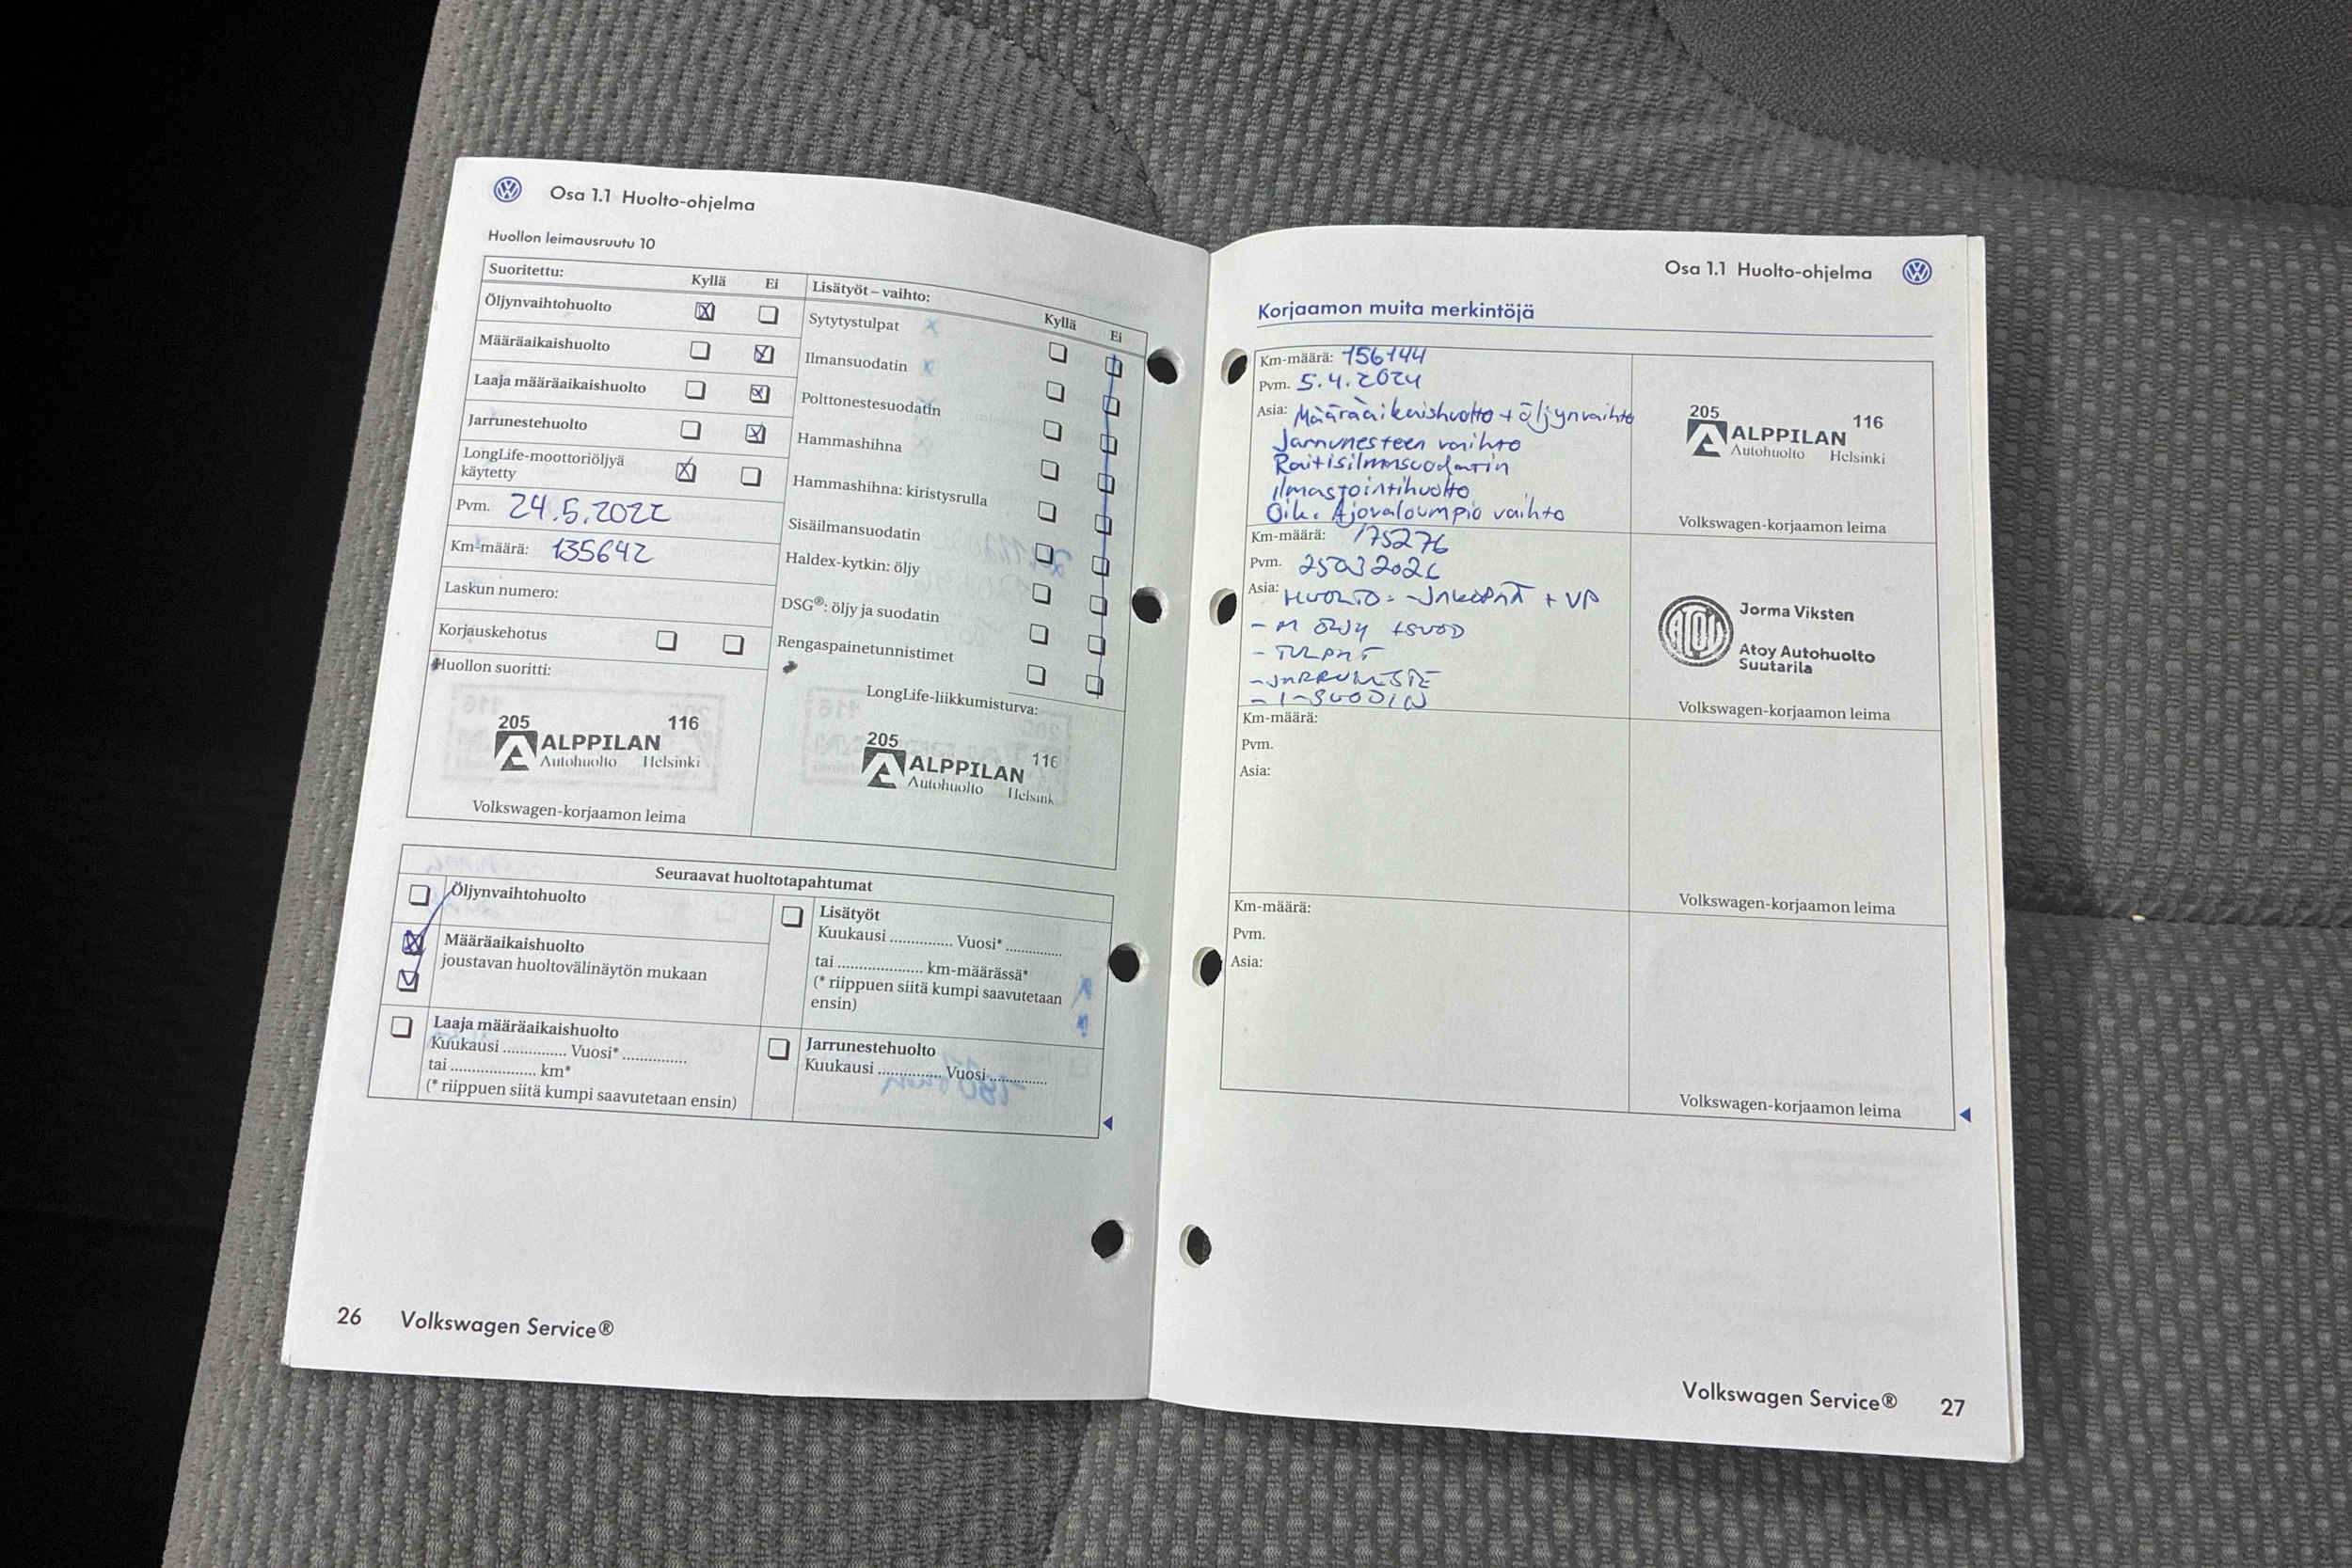 Osa 1.1 Huolto-ohjelma
Huollon leimausruutu 10
Suoritettu: Kyllä Ei
Öljynvaihtohuolto
Määräaikaishuolto
Laaja määräaikaishuolto
Jarrunestehuolto
LongLife-moottoriöljyä
käytetty
Pvm. 24.5.2022
Km-määrä: 135642
Laskun numero:
Korjauskehotus
Huollon suoritti:
205 116
ALPPILAN
Autohuolto Helsinki
Volkswagen-korjaamon leima
Lisätyöt – vaihto: Kyllä Ei
Sytytystulpat
Ilmansuodatin
Polttonestesuodatin
Hammashihna
Hammashihna: kiristysrulla
Sisäilmansuodatin
Haldex-kytkin: öljy
DSG®: öljy ja suodatin
Rengaspainetunnistimet
LongLife-liikkumisturva:
205 116
ALPPILAN
Autohuolto Helsink
Seuraavat huoltotapahtumat
Öljynvaihtohuolto
Määräaikaishuolto
joustavan huoltovälinäytön mukaan
Laaja määräaikaishuolto
Kuukausi .............. Vuosi* ..............
tai ................... km*
(* riippuen siitä kumpi saavutetaan ensin)
Lisätyöt
Kuukausi .............. Vuosi* .............
tai ................... km-määrässä*
(* riippuen siitä kumpi saavutetaan
ensin)
Jarrunestehuolto
Kuukausi .............. Vuosi .............
26 Volkswagen Service®
Osa 1.1 Huolto-ohjelma
Korjaamon muita merkintöjä
Km-määrä: 156144
Pvm. 5.4.2024
Asia: Määräaikaishuolto + öljynvaihto
Jarrunesteen vaihto
Raitisilmasuodatin
ilmastointihuolto
Oik. Ajovaloumpio vaihto
205 116
ALPPILAN
Autohuolto Helsinki
Volkswagen-korjaamon leima
Km-määrä: 175276
Pvm. 25032026
Asia: HUOLTO: -JAKOPÄÄ + VP
- M ÖLJY + SUOD
- TULPAT
- JARRUNESTE
- I-SUODIN
Jorma Viksten
Atoy Autohuolto
Suutarila
Volkswagen-korjaamon leima
Km-määrä:
Pvm.
Asia:
Volkswagen-korjaamon leima
Km-määrä:
Pvm.
Asia:
Volkswagen-korjaamon leima
Volkswagen Service® 27